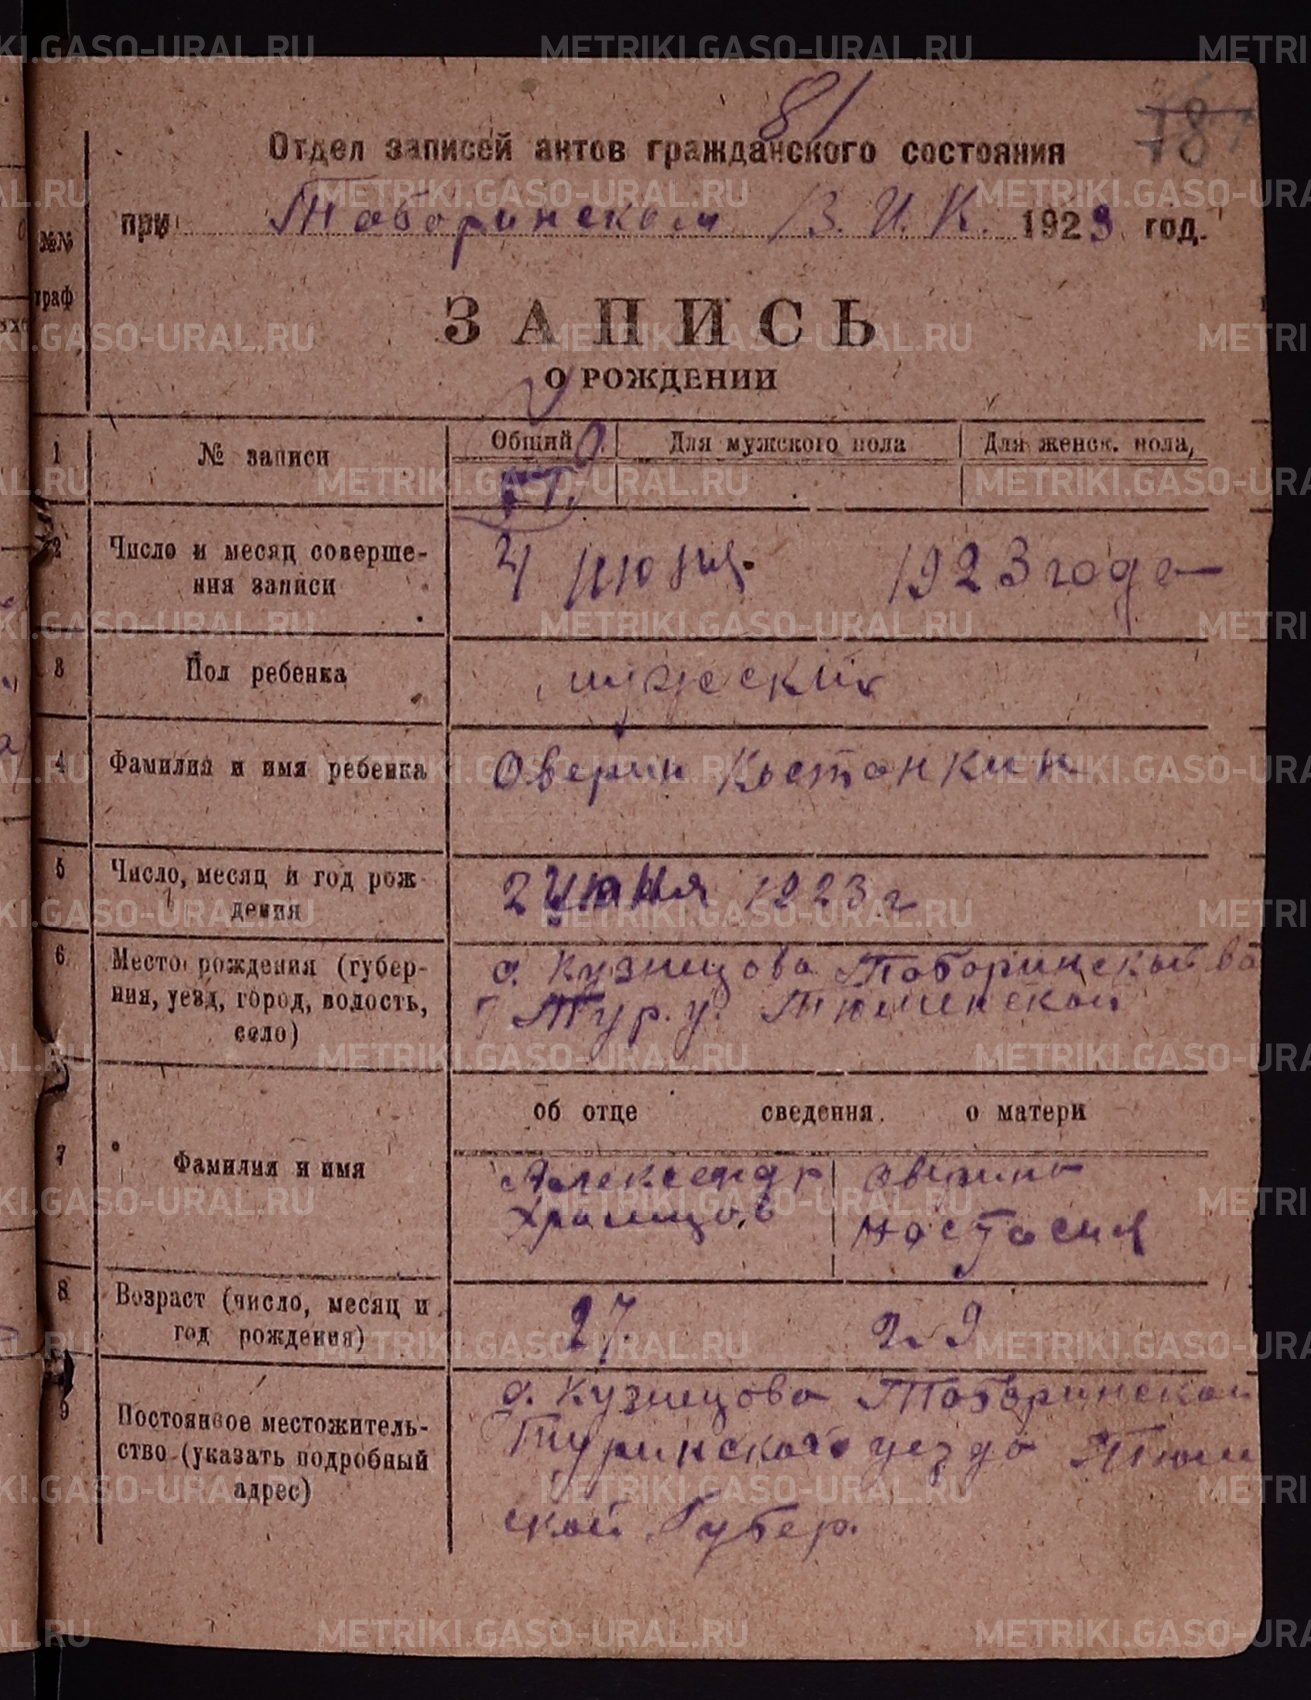 81
78
Отдел записей актов гражданского состояния
при Таборинском В. И. К. 1923 год.
№№ граф
ЗАПИСЬ
О РОЖДЕНИИ
1 № записи Общий Для мужского пола Для женск. пола,
2 Число и месяц соверше-
ния записи 4 июня 1923 года
3 Пол ребенка мужеский
4 Фамилия и имя ребенка Оверин Костанкин
5 Число, месяц и год рож-
дения 2 июня 1923 г
6 Место рождения (губер-
ния, уезд, город, волость,
село) д. Кузнецова Таборинской во
Тур. у. Тюминской
об отце сведения о матери
7 Фамилия и имя Александр Оверина
Храмцов Настасия
8 Возраст (число, месяц и
год рождения) 27. 29
9 Постоянное местожитель-
ство (указать подробный
адрес) д. Кузнецова Таборинской
Туринского уезда Тюм
ской Губер.
METRIKI.GASO-URAL.RU